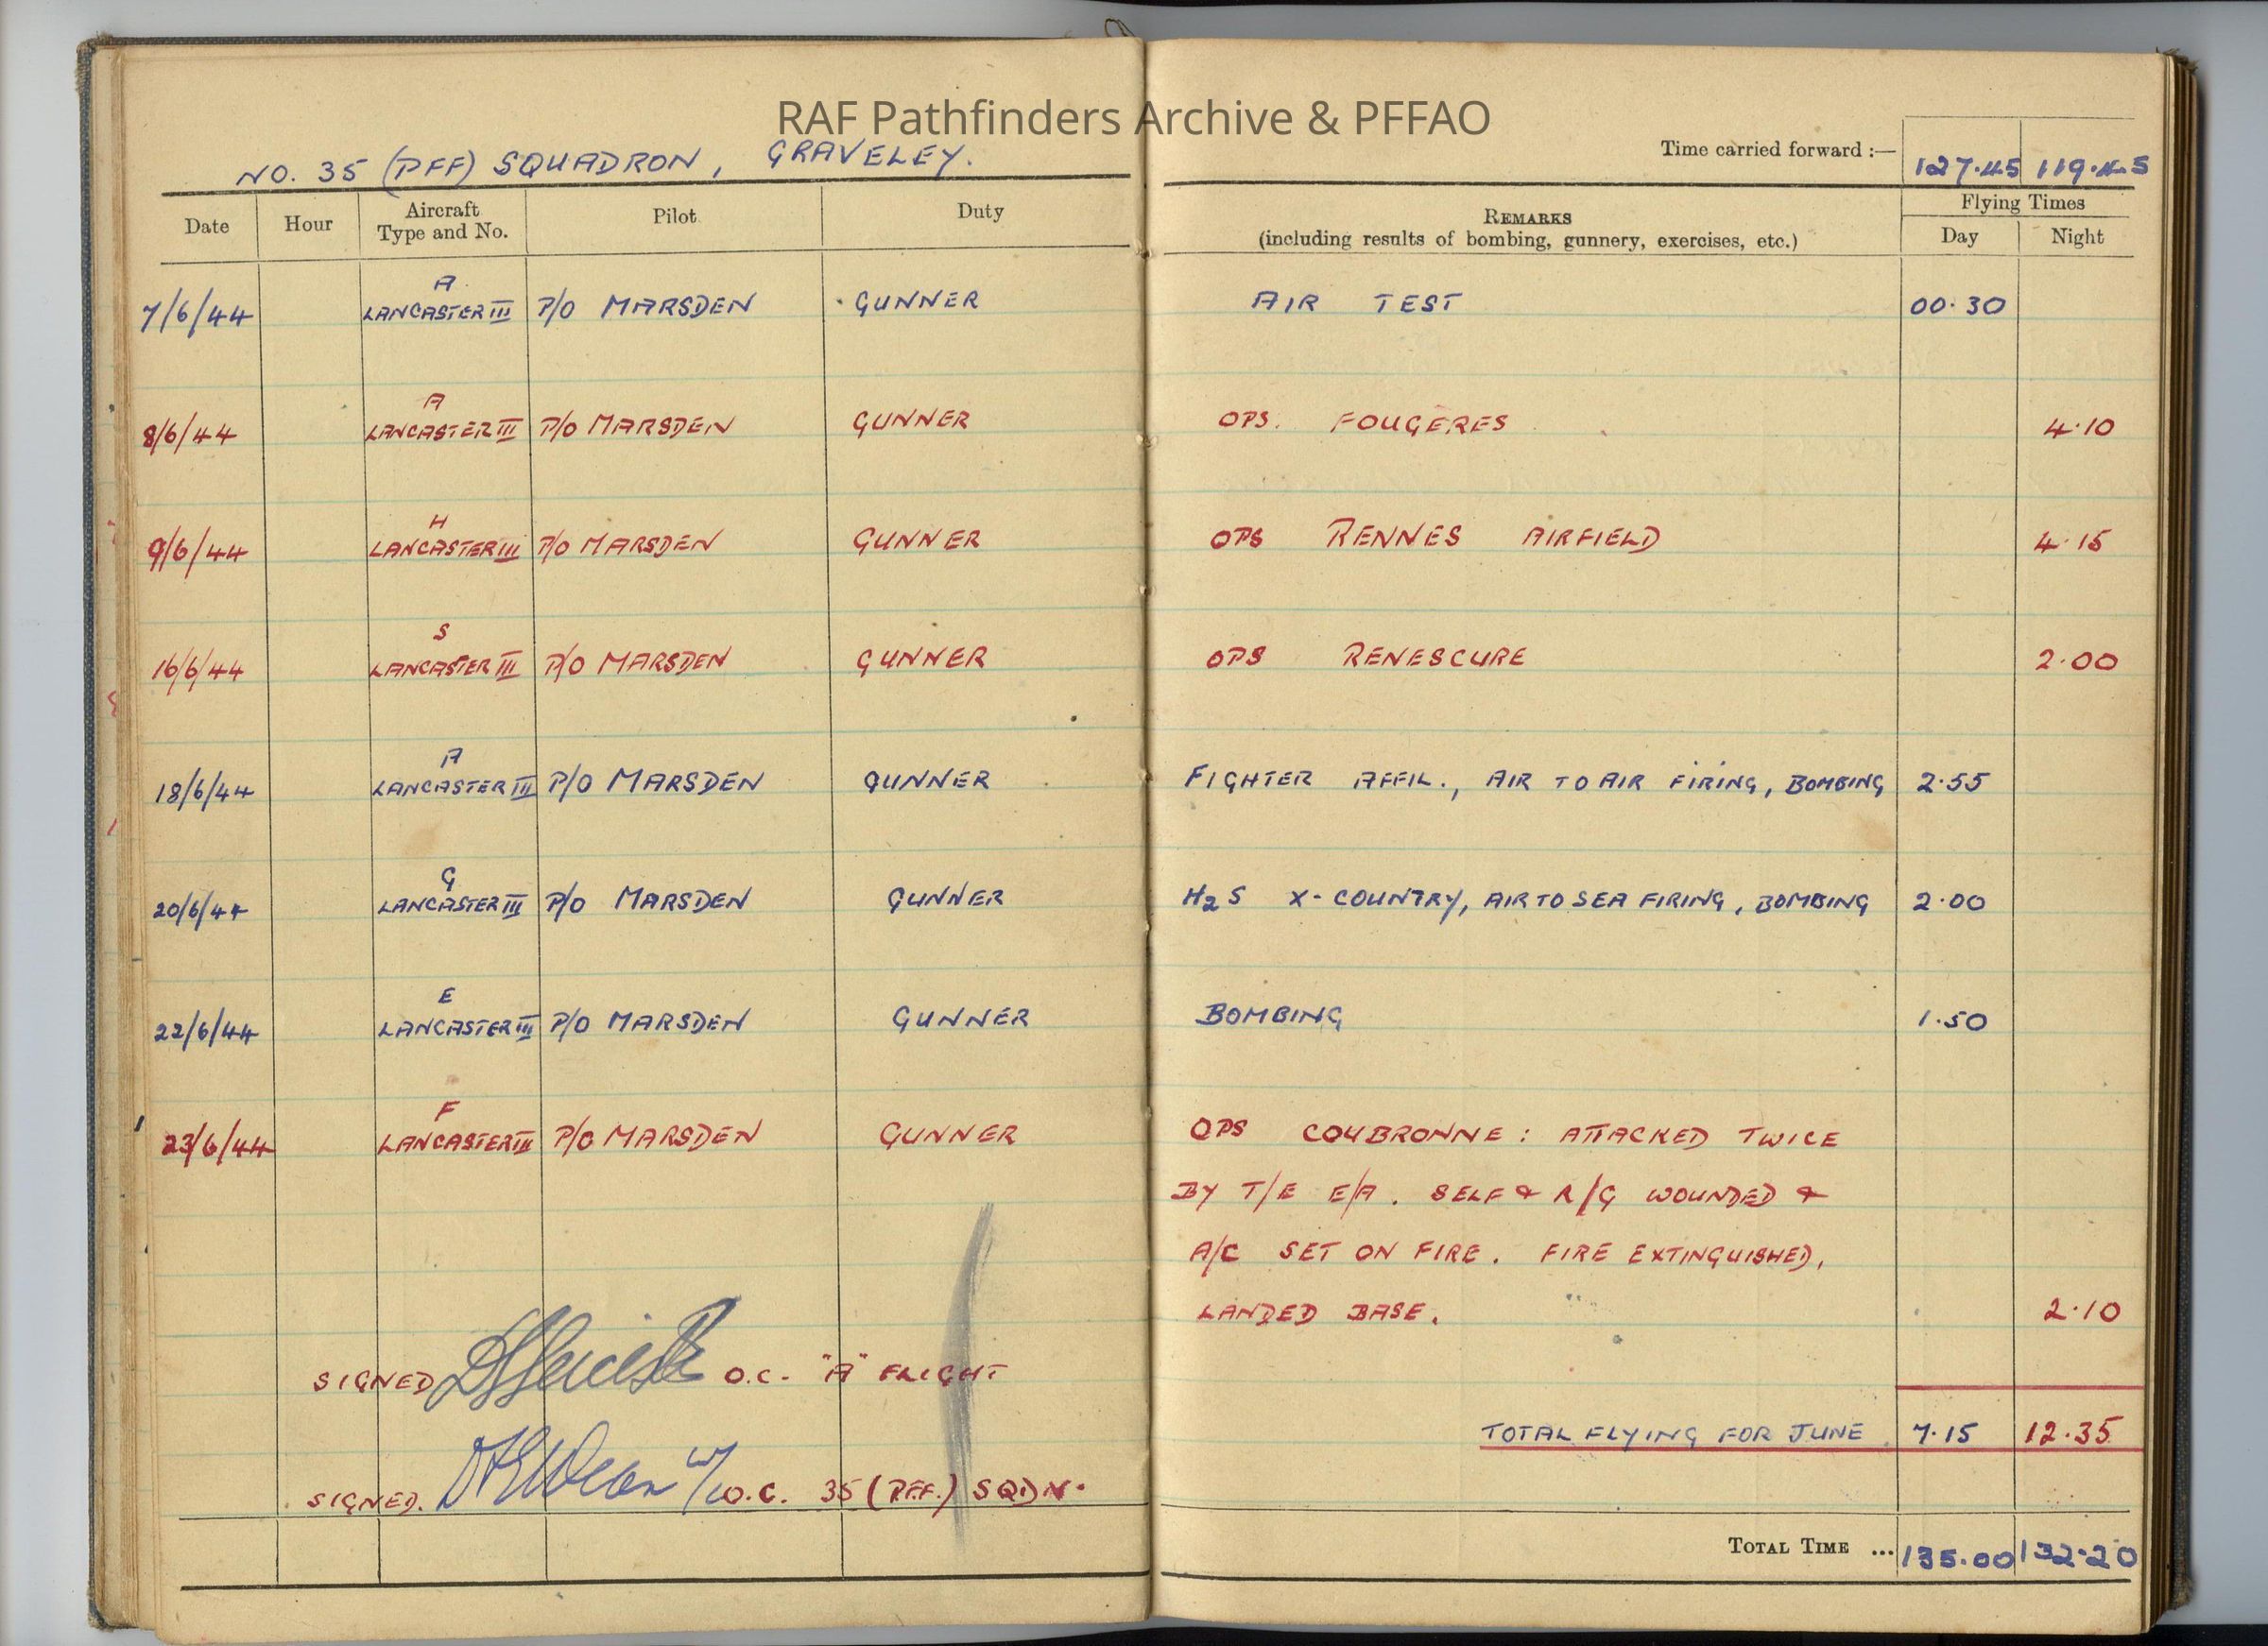 RAF Pathfinders Archive & PFFAO
NO. 35 (PFF) SQUADRON, GRAVELEY.
Time carried forward :— 127.45 119.45
Date Hour Aircraft Type and No. Pilot Duty REMARKS (including results of bombing, gunnery, exercises, etc.) Flying Times Day Night
A
7/6/44 LANCASTER III P/O MARSDEN GUNNER AIR TEST 00.30
A
8/6/44 LANCASTER III P/O MARSDEN GUNNER OPS. FOUGERES 4.10
H
9/6/44 LANCASTER III P/O MARSDEN GUNNER OPS RENNES AIRFIELD 4.15
S
16/6/44 LANCASTER III P/O MARSDEN GUNNER OPS RENESCURE 2.00
A
18/6/44 LANCASTER III P/O MARSDEN GUNNER FIGHTER AFFIL., AIR TO AIR FIRING, BOMBING 2.55
G
20/6/44 LANCASTER III P/O MARSDEN GUNNER H2S X-COUNTRY, AIR TO SEA FIRING, BOMBING 2.00
E
22/6/44 LANCASTER III P/O MARSDEN GUNNER BOMBING 1.50
F
23/6/44 LANCASTER III P/O MARSDEN GUNNER OPS COUBRONNE : ATTACKED TWICE
BY T/E E/A. SELF & R/G WOUNDED &
A/C SET ON FIRE. FIRE EXTINGUISHED,
LANDED BASE. 2.10
SIGNED O.C. "A" FLIGHT
TOTAL FLYING FOR JUNE 7.15 12.35
SIGNED. O.C. 35 (P.F.F.) SQDN.
TOTAL TIME ... 135.00 132.20